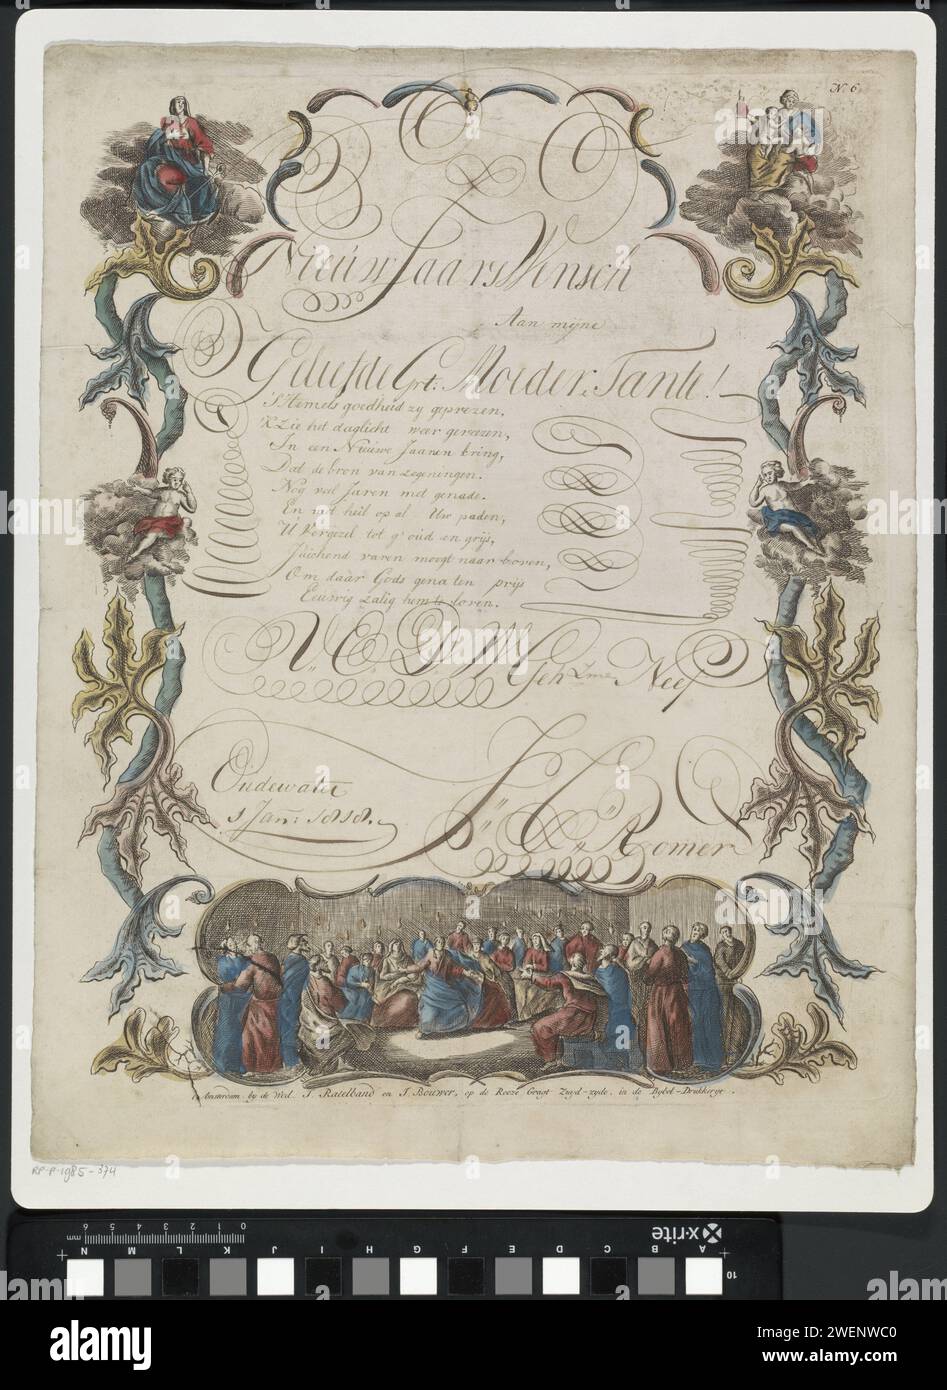 No 6.
Nieuw Jaars Wensch
Aan mijne
Geliefde Grt: Moeder, Tante!
S'Hemels goedheid zy geprezen,
'K Zie het daglicht weer gereezen,
In een Nieuwe Jaaren kring,
Dat de bron van zegeningen.
Nog veel Jaren met genade.
En met heil op al Uw paden,
U Vergezel tot g'oud en grijs,
Juichend varen moogt naar boven,
Om daar Gods gena ten prijs
Eeuwig zalig hem te loven.
U: E: D: W: Geh Zme Neef
Oudewater
1 Jan: 1818.
J: C: Romer
t'Amsterdam, by de Wed. J. Ratelband en J. Bouwer, op de Rooze Gragt Zuyd-zyde, in de Bybel-Drukkerye.
RP-P-1985-374
x·rite
mm
0 1 2 3 4 5 6
A B C D E F G H I J K L M N
10
alamy
Image ID: 2WENWC0
www.alamy.com